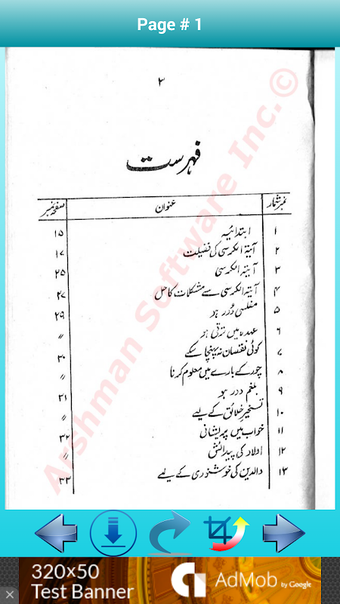 Page # 1
۲
فہرست
نمبر شمار عنوان صفحہ نمبر
۱ ابتدائیہ ۱۵
۲ آیۃ الکرسی کی فضیلت ۱۷
۳ آیۃ الکرسی ۲۵
۴ آیۃ الکرسی سے مشکلات کا حل ۲۷
۵ مفلسی دور ہو ۲۹
۶ عہدہ میں ترقی ہو ״
۷ کوئی نقصان نہ پہنچا سکے ۳۰
۸ چور کے بارے میں معلوم کرنا ״
۹ بلغم دور ہو ۳۱
۱۰ تسخیر خلائق کے لیے ״
۱۱ خواب میں پریشانی ۳۲
۱۲ اولاد کی پیدائش ״
۱۳ والدین کی خوشنودی کے لیے ۳۳
Arshman Software Inc.©
320x50
Test Banner
AdMob by Google